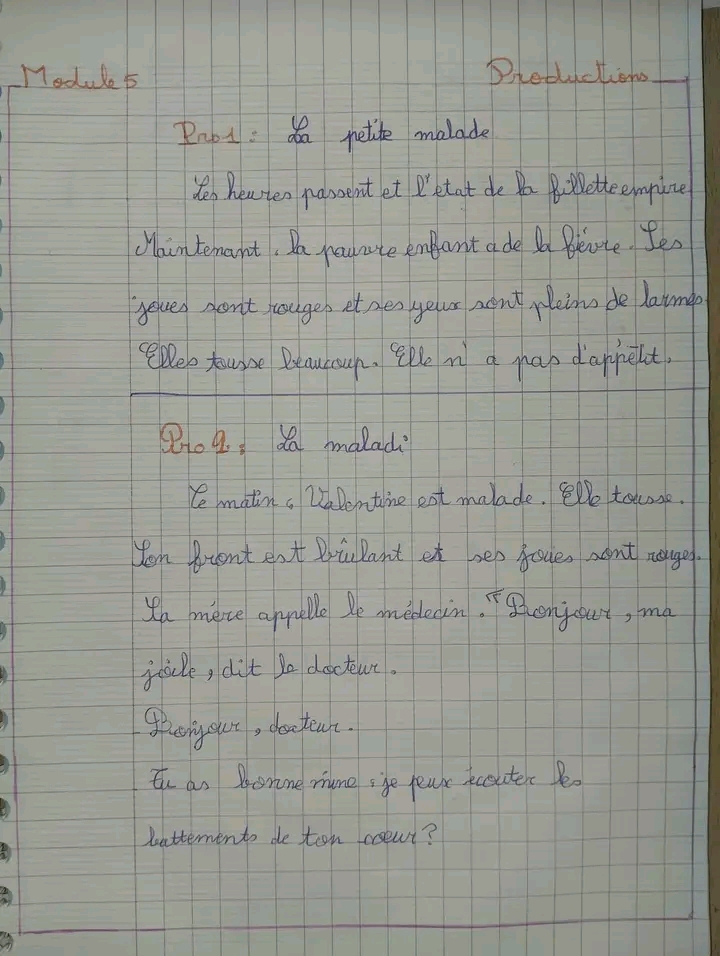 Module 5 Productions
Pro 1 : La petite malade
Les heures passent et l'état de la fillette empire
Maintenant, la pauvre enfant a de la fièvre. Ses
joues sont rouges et ses yeux sont pleins de larmes
Elles tousse beaucoup. Elle n'a pas d'appétit.
Pro 2 : La maladi
Ce matin, Valentine est malade. Elle tousse.
Son front est brûlant et ses joues sont rouges.
Sa mère appelle le médecin. "Bonjour, ma
jolie, dit le docteur.
Bonjour, docteur.
Tu as bonne mine, je peux écouter les
battements de ton coeur ?